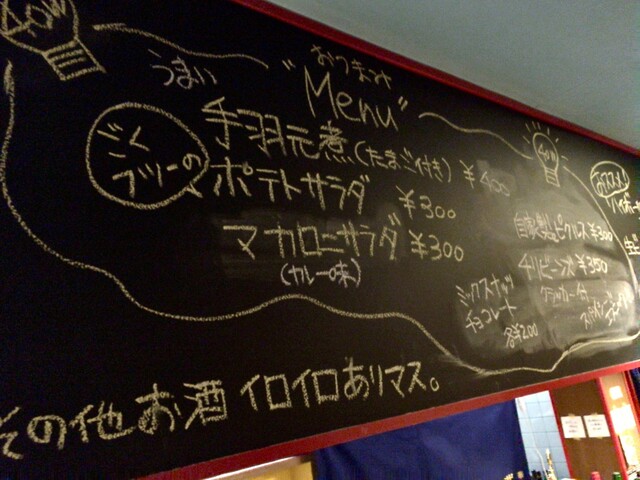 40W
おつまみ
"Menu"
うまい
手羽元煮(たまご付き) ¥400
ごく
フツーの
ポテトサラダ ¥300
マカロニーサラダ ¥300
(カレー味)
40W
自家製ピクルス ¥300
チリビーンズ ¥350
ミックスナッツ
チョコレート
各¥200
クラッカー
オススメ!
その他お酒イロイロありマス。